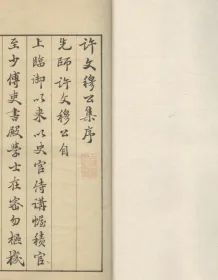 许文穆公集序
先師許文穆公自
上臨御以来以史官侍講幄積官
至少傅史書殿學士在密勿極機